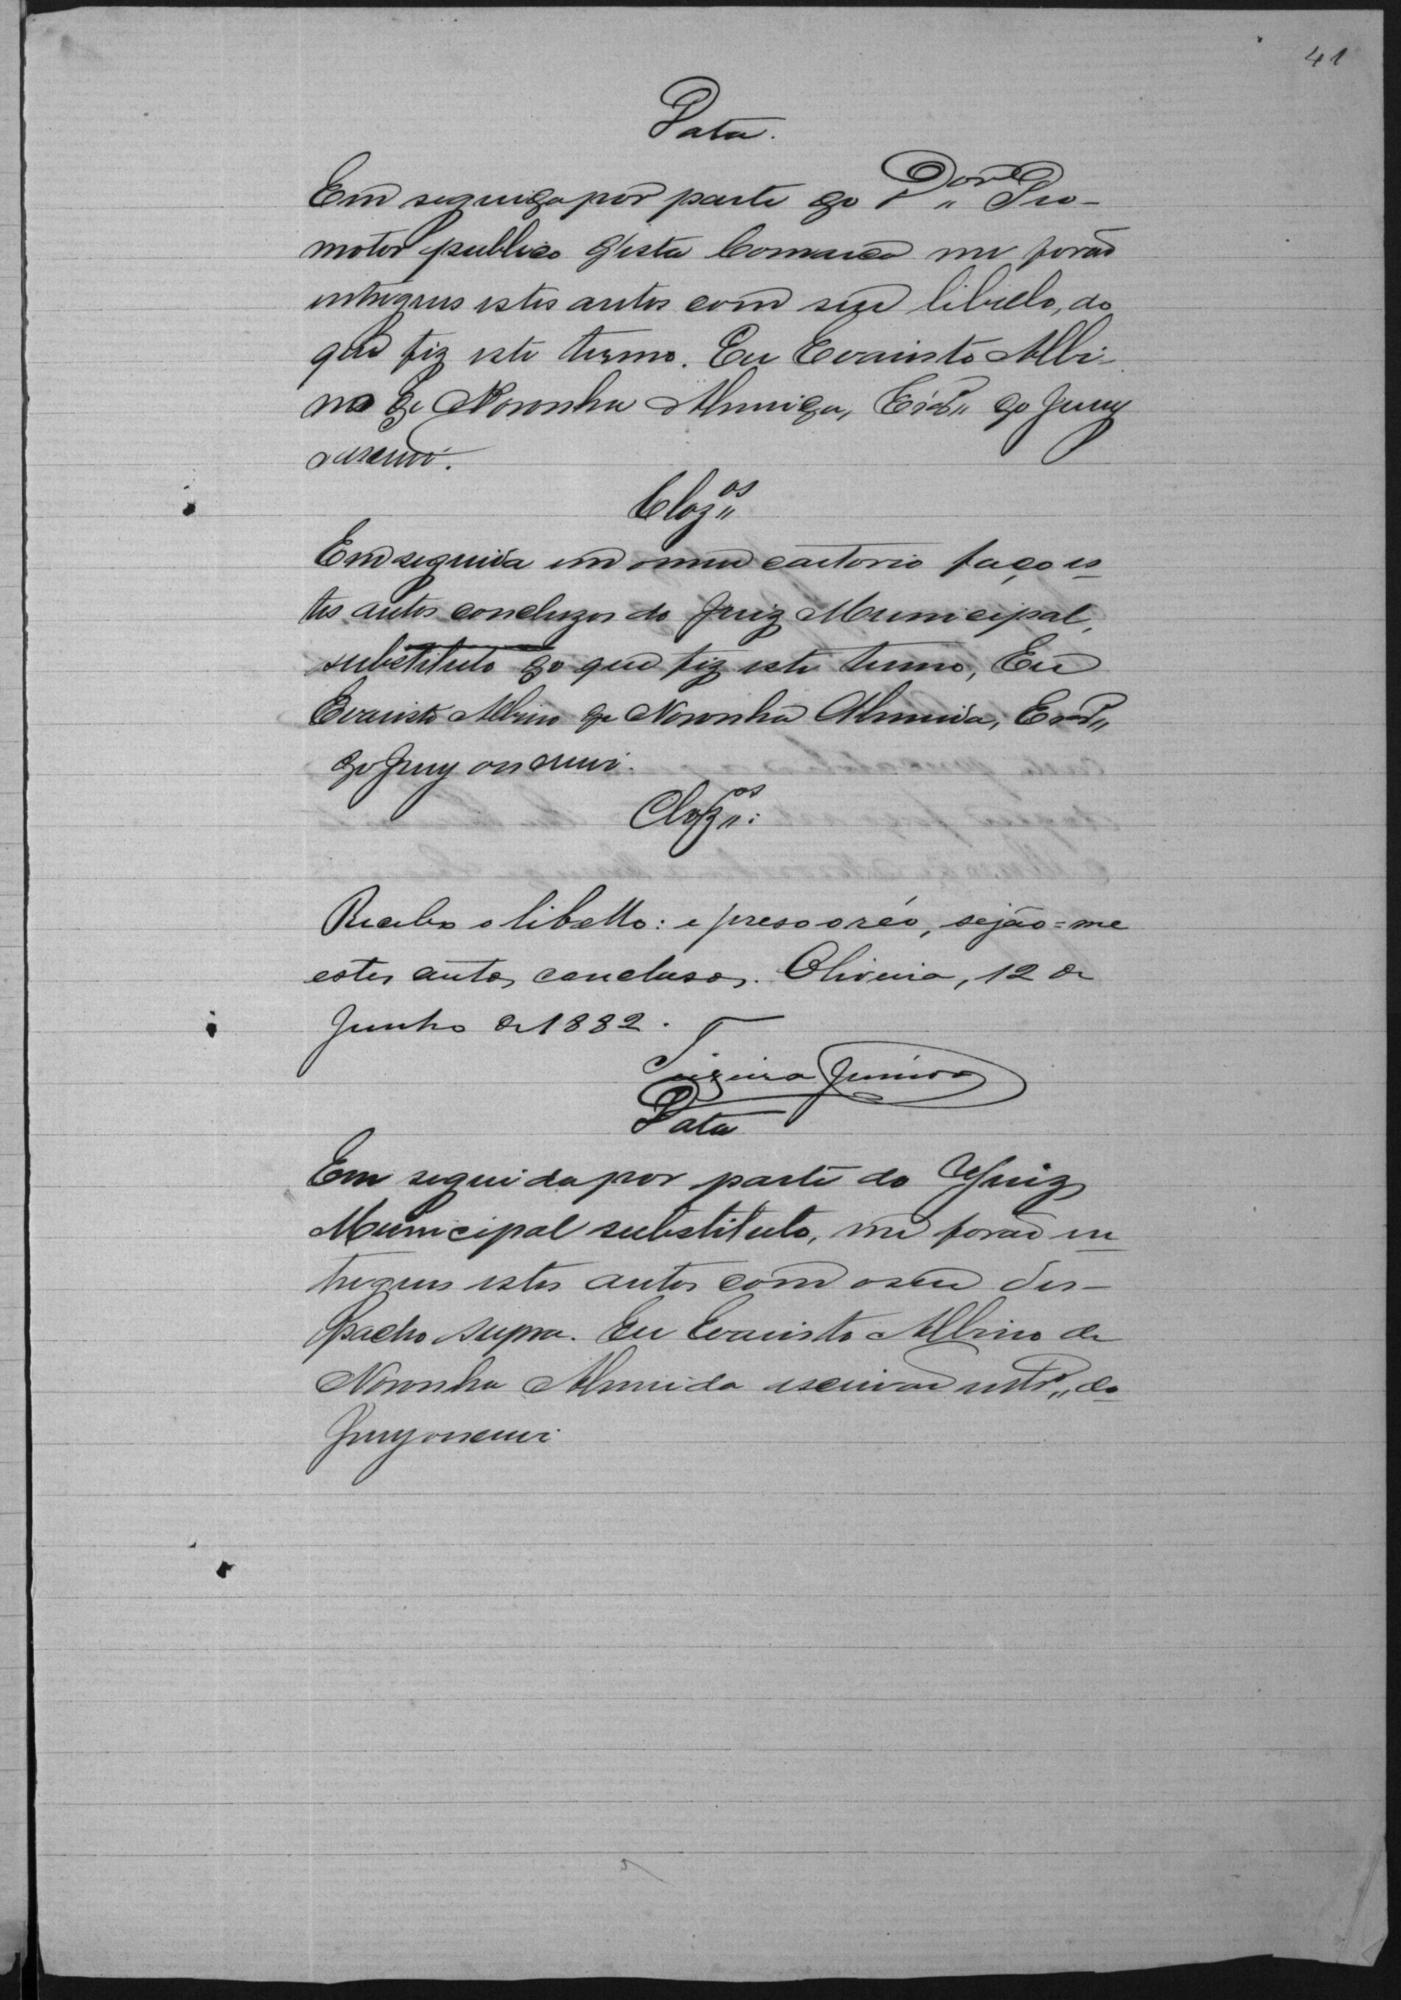 41
Data.
Em seguida por parte do Dor Pro-
motor publico d'esta Comarca me forão
entregues estes autos com seu libello, do
que fiz este termo. Eu Evaristo Albi-
no de Noronha Almeida, do Jury
escrevi.
Clzos
Em seguida em o meu cartorio faço es-
tes autos concluzos do Juiz Municipal,
substituto do que fiz este termo, Eu
Evaristo Albino de Noronha Almeida,
do Jury o escrevi.
Clzos:
Recebo o libello: e preso o réo, sejão=me
estes autos conclusos. Oliveira, 12 de
Junho de 1882.
Teixeira Junior
Data
Em seguida por parte do Juiz
Municipal substituto, me forão en-
tregues estes autos com o seu des-
pacho supra. Eu Evaristo Albino de
Noronha Almeida escrivão do
Jury o escrevi